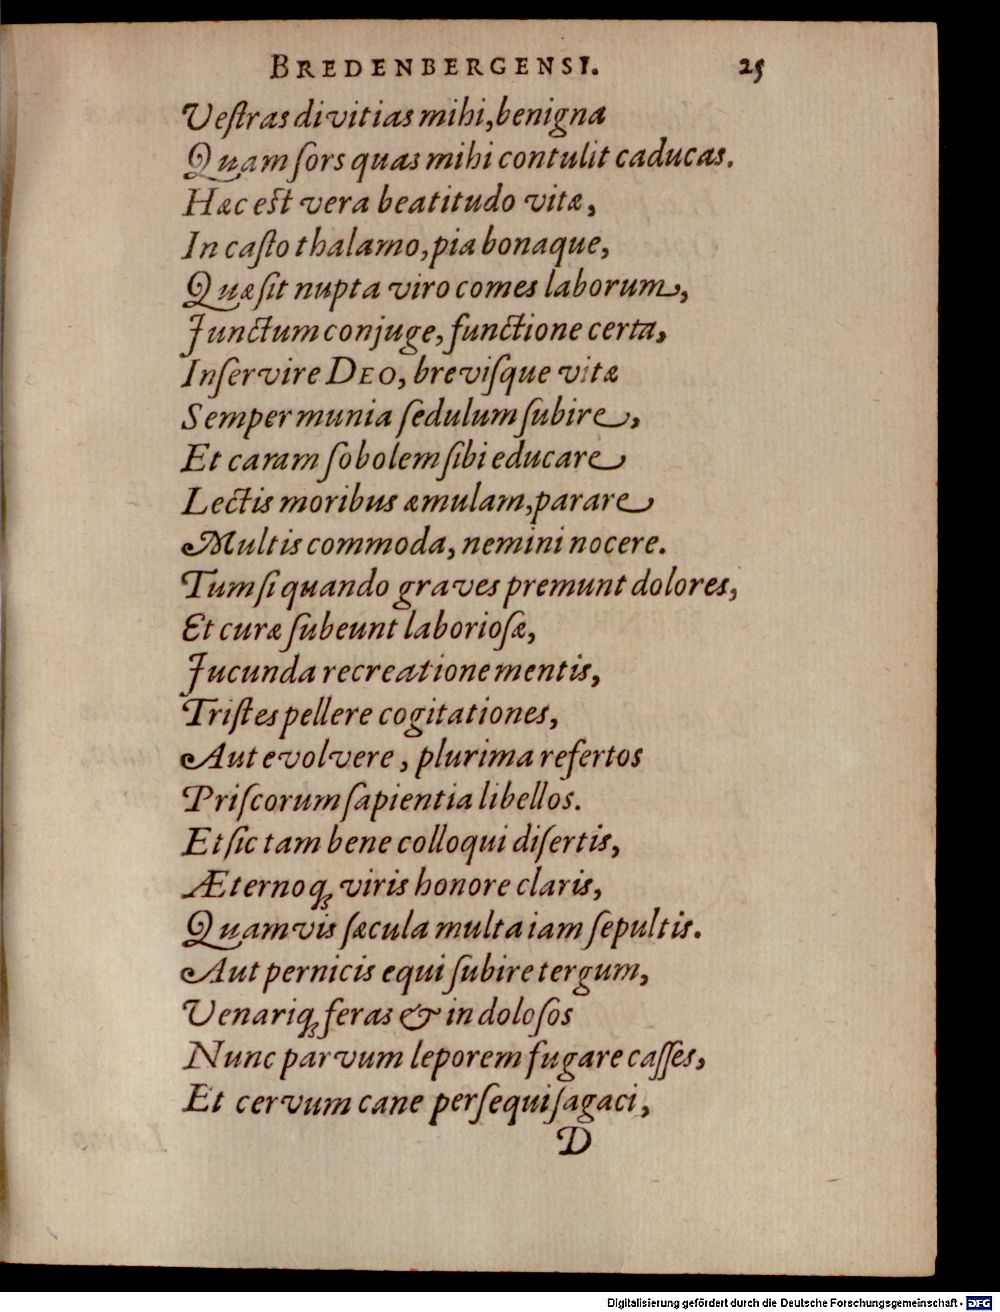 BREDENBERGENSI. 25
Veſtras divitias mihi, benigna
Quam ſors quas mihi contulit caducas.
Hæc est vera beatitudo vitæ,
In caſto thalamo, pia bonaque,
Quæ ſit nupta viro comes laborum,
Junctum conjuge, functione certa,
Inſervire DEO, breviſque vitæ
Semper munia ſedulum ſubire,
Et caram ſobolem ſibi educare
Lectis moribus æmulam, parare
Multis commoda, nemini nocere.
Tum ſi quando graves premunt dolores,
Et curæ ſubeunt laborioſæ,
Jucunda recreatione mentis,
Triſtes pellere cogitationes,
Aut evolvere, plurima refertos
Priſcorum ſapientia libellos.
Et ſic tam bene colloqui diſertis,
Æternoq́ꝫ viris honore claris,
Quamvis ſæcula multa iam ſepultis.
Aut pernicis equi ſubire tergum,
Venariqꝫ feras & in doloſos
Nunc parvum leporem fugare caſſes,
Et cervum cane perſequi ſagaci,
D
Digitalisierung gefördert durch die Deutsche Forschungsgemeinschaft - DFG